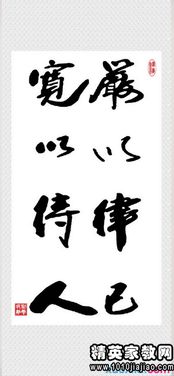 嚴以律己
寬以待人
精英家教网
www.1010jiajiao.com